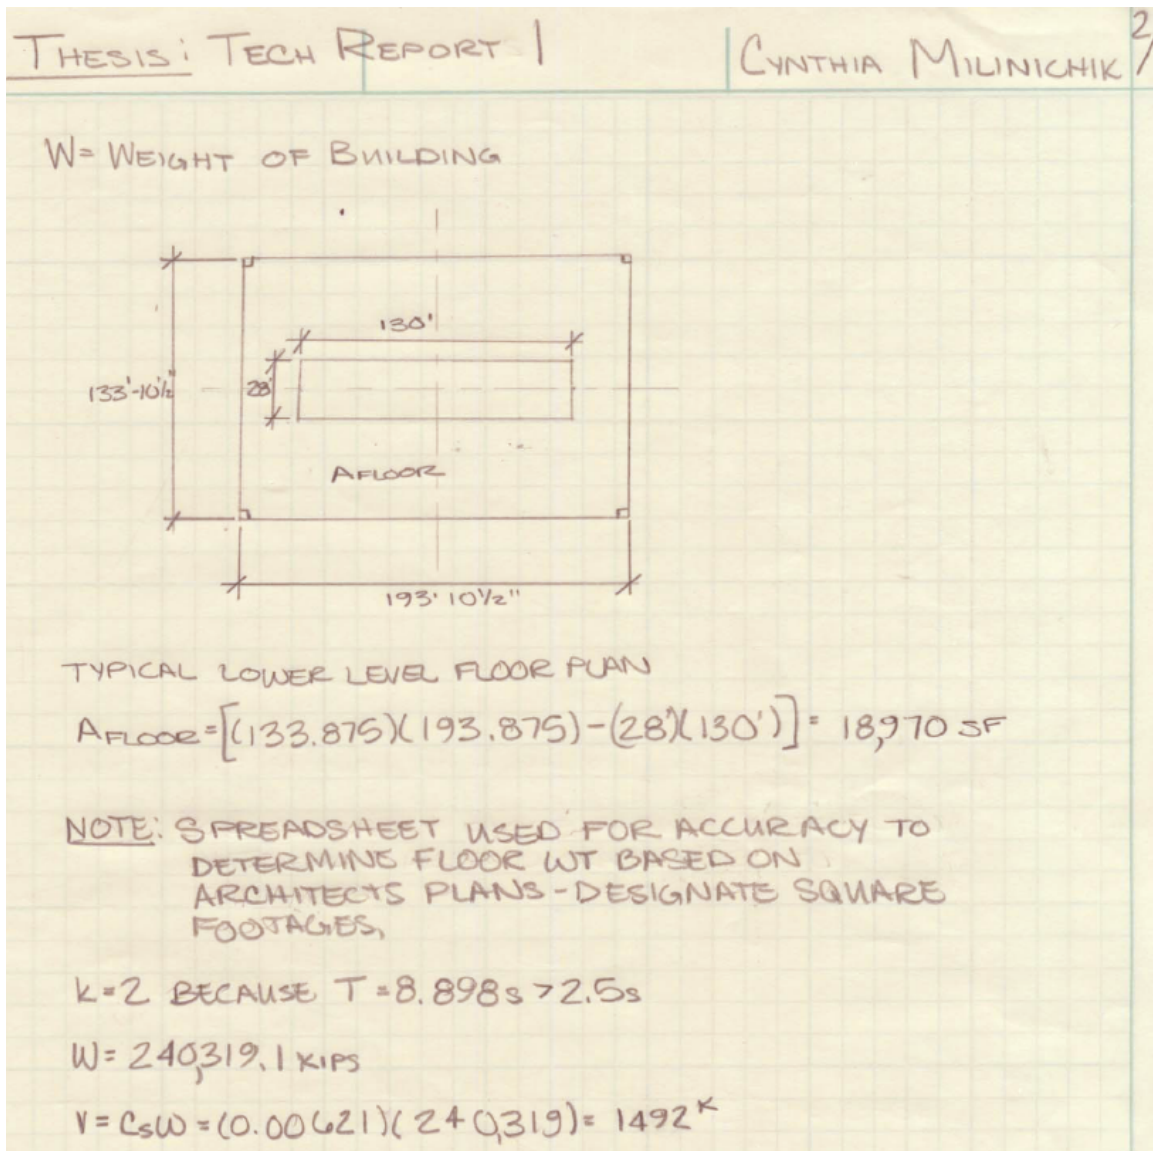 THESIS: TECH REPORT 1
CYNTHIA MILINICHIK
2/
W= WEIGHT OF BUILDING
130'
133'-10½"
28'
AFLOOR
193' 10½"
TYPICAL LOWER LEVEL FLOOR PLAN
AFLOOR=[(133.875)(193.875)-(28')(130')]= 18,970 SF
NOTE: SPREADSHEET USED FOR ACCURACY TO
DETERMINE FLOOR WT BASED ON
ARCHITECTS PLANS-DESIGNATE SQUARE
FOOTAGES,
k=2 BECAUSE T=8.898s>2.5s
W= 240,319.1 KIPS
V= CsW =(0.00621)(240,319)= 1492ᴷ